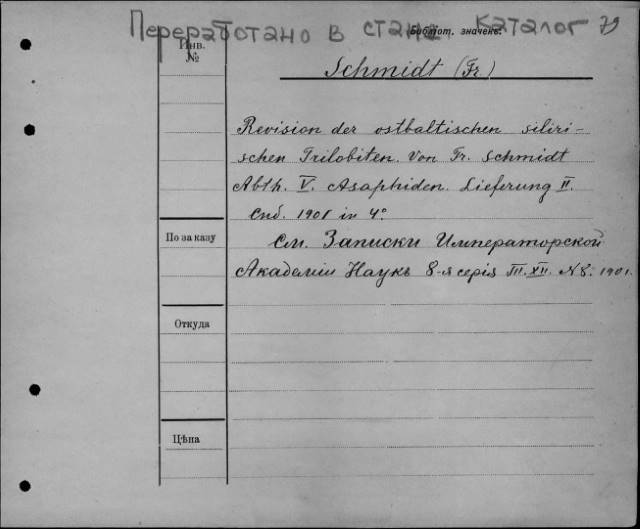 Переработано в станд. каталог 79
Библіот. значекъ.
Инв. №
Schmidt (Fr.)
Revision der ostbaltischen siliri-
schen Trilobiten. Von Fr. Schmidt
Abth. V. Asaphiden. Lieferung II.
Спб. 1901 in 4°
По заказу
См. Записки Императорской
Академіи Наукъ 8-я серія Т. XII. №8. 1901.
Откуда
Цѣна